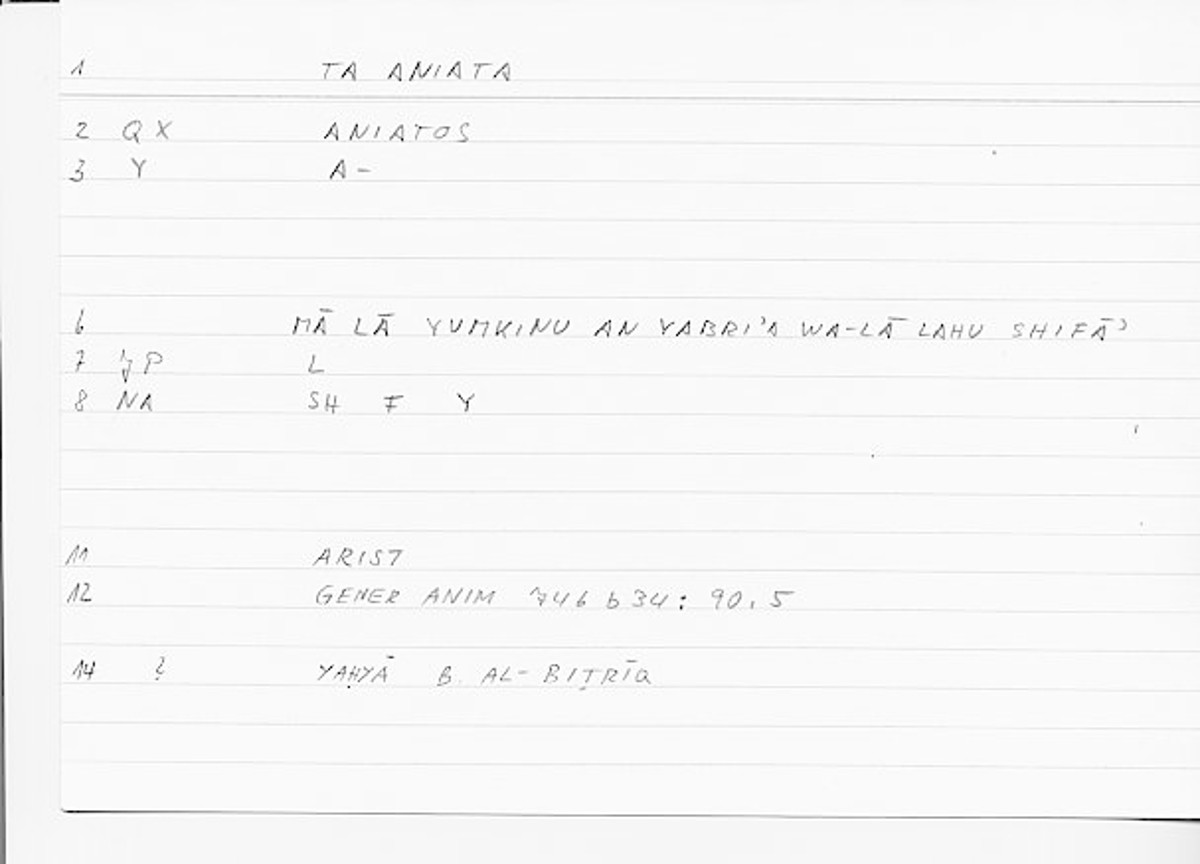 1 TA ANIATA
2 QX ANIATOS
3 Y A-
6 MĀ LĀ YUMKINU AN YABRI'A WA-LĀ LAHU SHIFĀ'
7 P L
8 NA SH F Y
11 ARIST
12 GENER ANIM 746 b 34: 90.5
14 ? YAḤYĀ B. AL-BIṬRĪQ